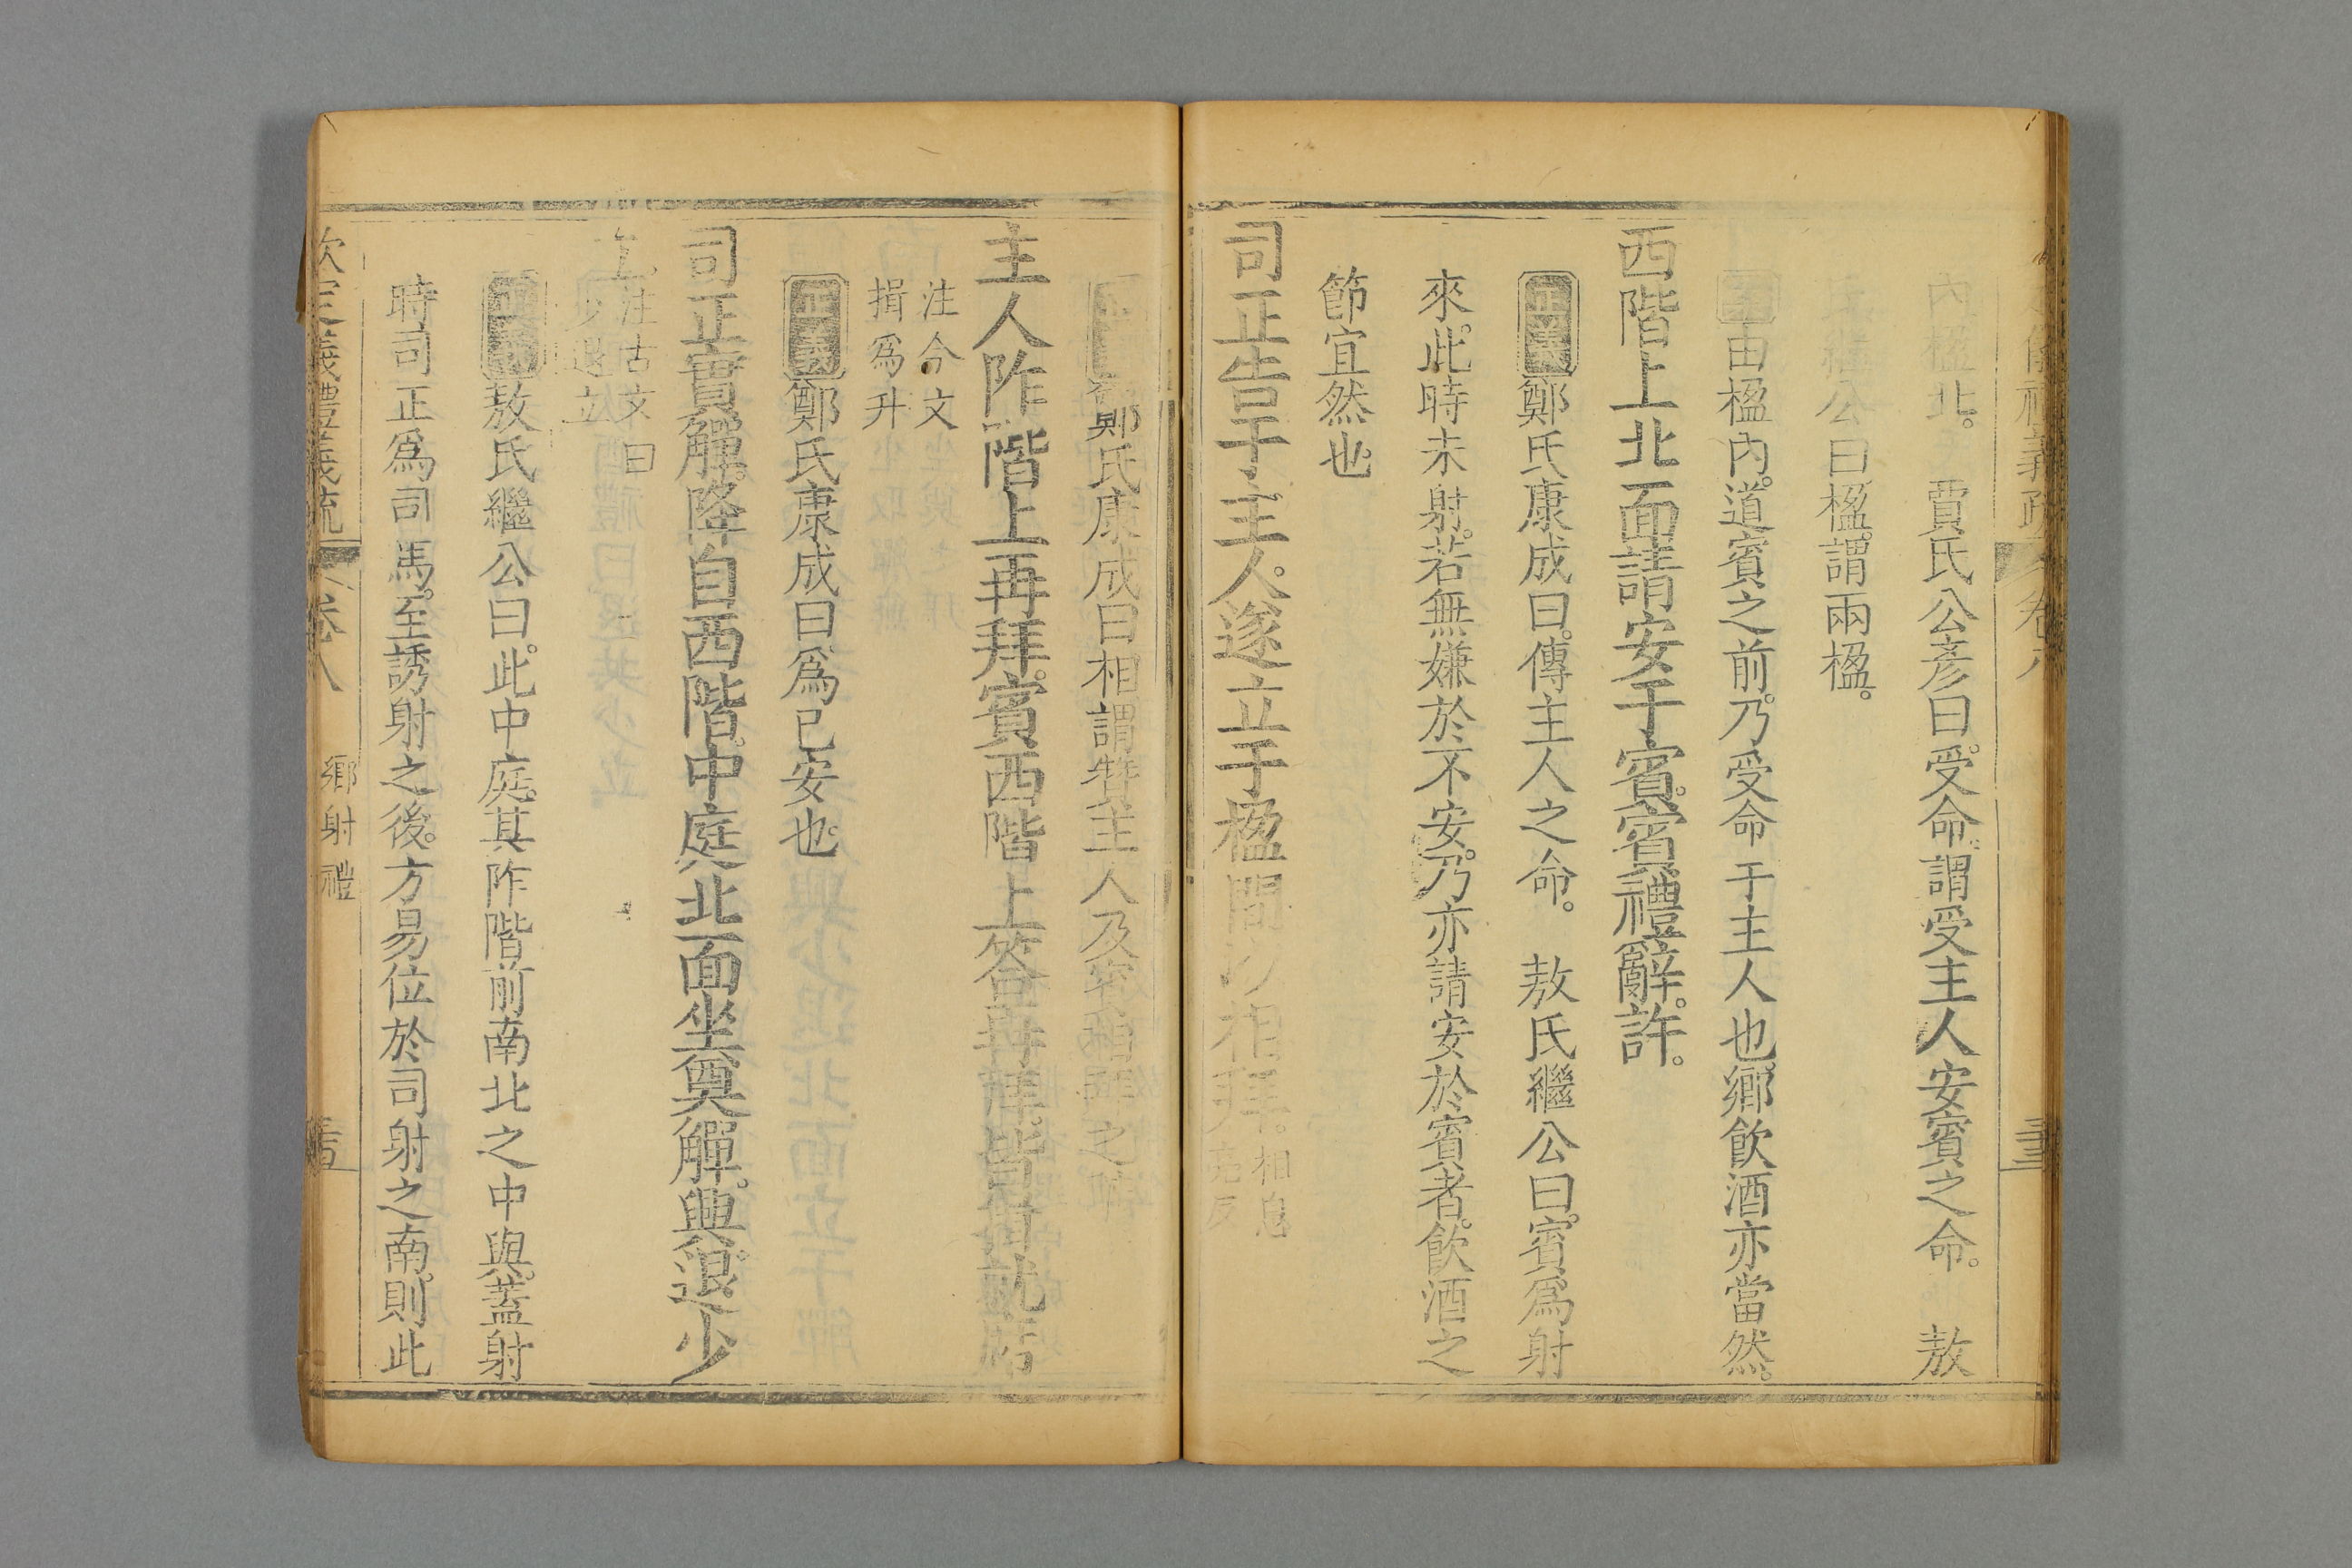 內楹北。　賈氏公彥曰。受命。謂受主人安賓之命。　敖
繼公曰楹。謂兩楹。
由楹內。道賓之前。乃受命于主人也。鄉飮酒亦當然。
西階上北面請安于賓。賓禮辭。許。
正義鄭氏康成曰。傳主人之命。　敖氏繼公曰。賓爲射
來。此時未射。若無嫌於不安。乃亦請安於賓者。飮酒之
節宜然也。
司正告于主人。遂立于楹閒以相拜。相息
亮反
鄭氏康成曰相。謂贊主人及賓相之辭
主人阼階上再拜。賓西階上答再拜。皆揖就席
注今文
揖爲升
正義鄭氏康成曰爲已安也。
司正實觶。降自西階。中庭北面坐奠觶。興。退。少
立。注古文曰
少退立
正義敖氏繼公曰。此中庭。其阼階前南北之中與。蓋射
時司正爲司馬。至誘射之後。方易位於司射之南。則此
欽定義禮義疏　卷八　鄉射禮